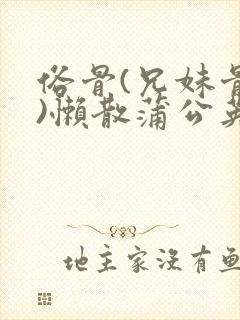 俗骨(兄妹骨
)懒散蒲公英
地主家没有鱼